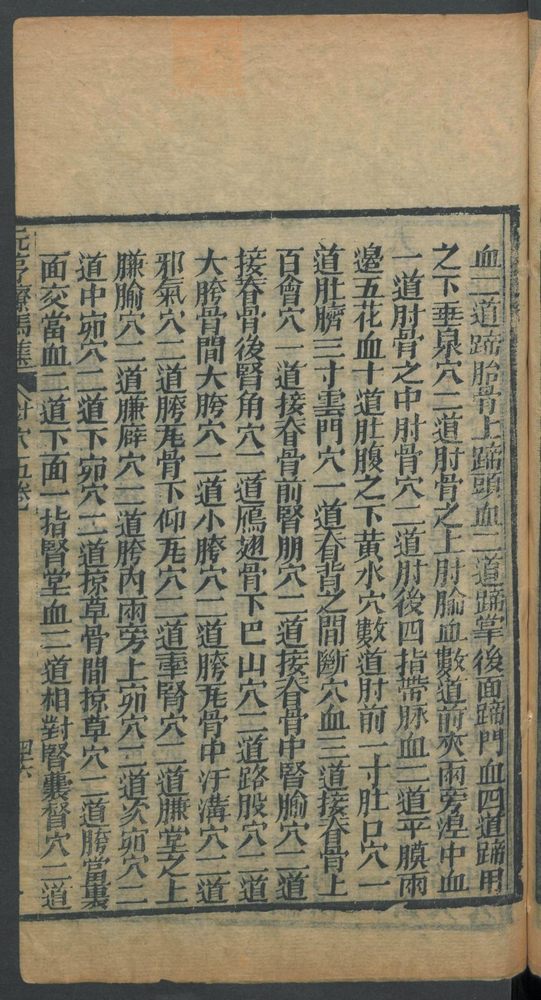 血二道蹄胎骨上蹄頭血二道蹄掌後面蹄門血四道蹄甲
之下垂泉穴二道肘骨之上肘腧血數道前夾兩旁湿中血
一道肘骨之中肘骨穴二道肘後四指帶脉血二道平膜兩
邊五花血十道肚腹之下黄水穴數道肘前一寸肚口穴一
道肚臍三寸雲門穴一道脊背之間斷穴血三道接脊骨上
百會穴一道接脊骨前腎朋穴二道接脊骨中腎腧穴二道
接脊骨後腎角穴二道鴈翅骨下巴山穴二道路股穴二道
大胯骨間大胯穴二道小胯穴二道胯尾骨中汗溝穴二道
邪氣穴二道胯尾骨下仰尾穴二道牽腎穴二道臁堂之上
臁腧穴二道臁癖穴二道胯内兩旁上窌穴二道次窌穴二
道中窌穴二道下窌穴二道掠草骨間掠草穴二道胯當裏
面交當血二道下面一指腎堂血二道相對腎囊督穴二道
元亨療馬集 針穴五卷 四六